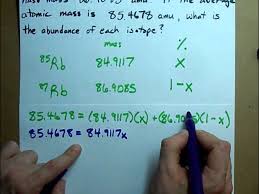 atomic mass is 85.4678 amu, what is
the abundance of each isotope?
mass %
85Rb 84.9117 x
87Rb 86.9085 1-x
85.4678 = (84.9117)(x) + (86.90 )(1-x)
85.4678 = 84.9117x